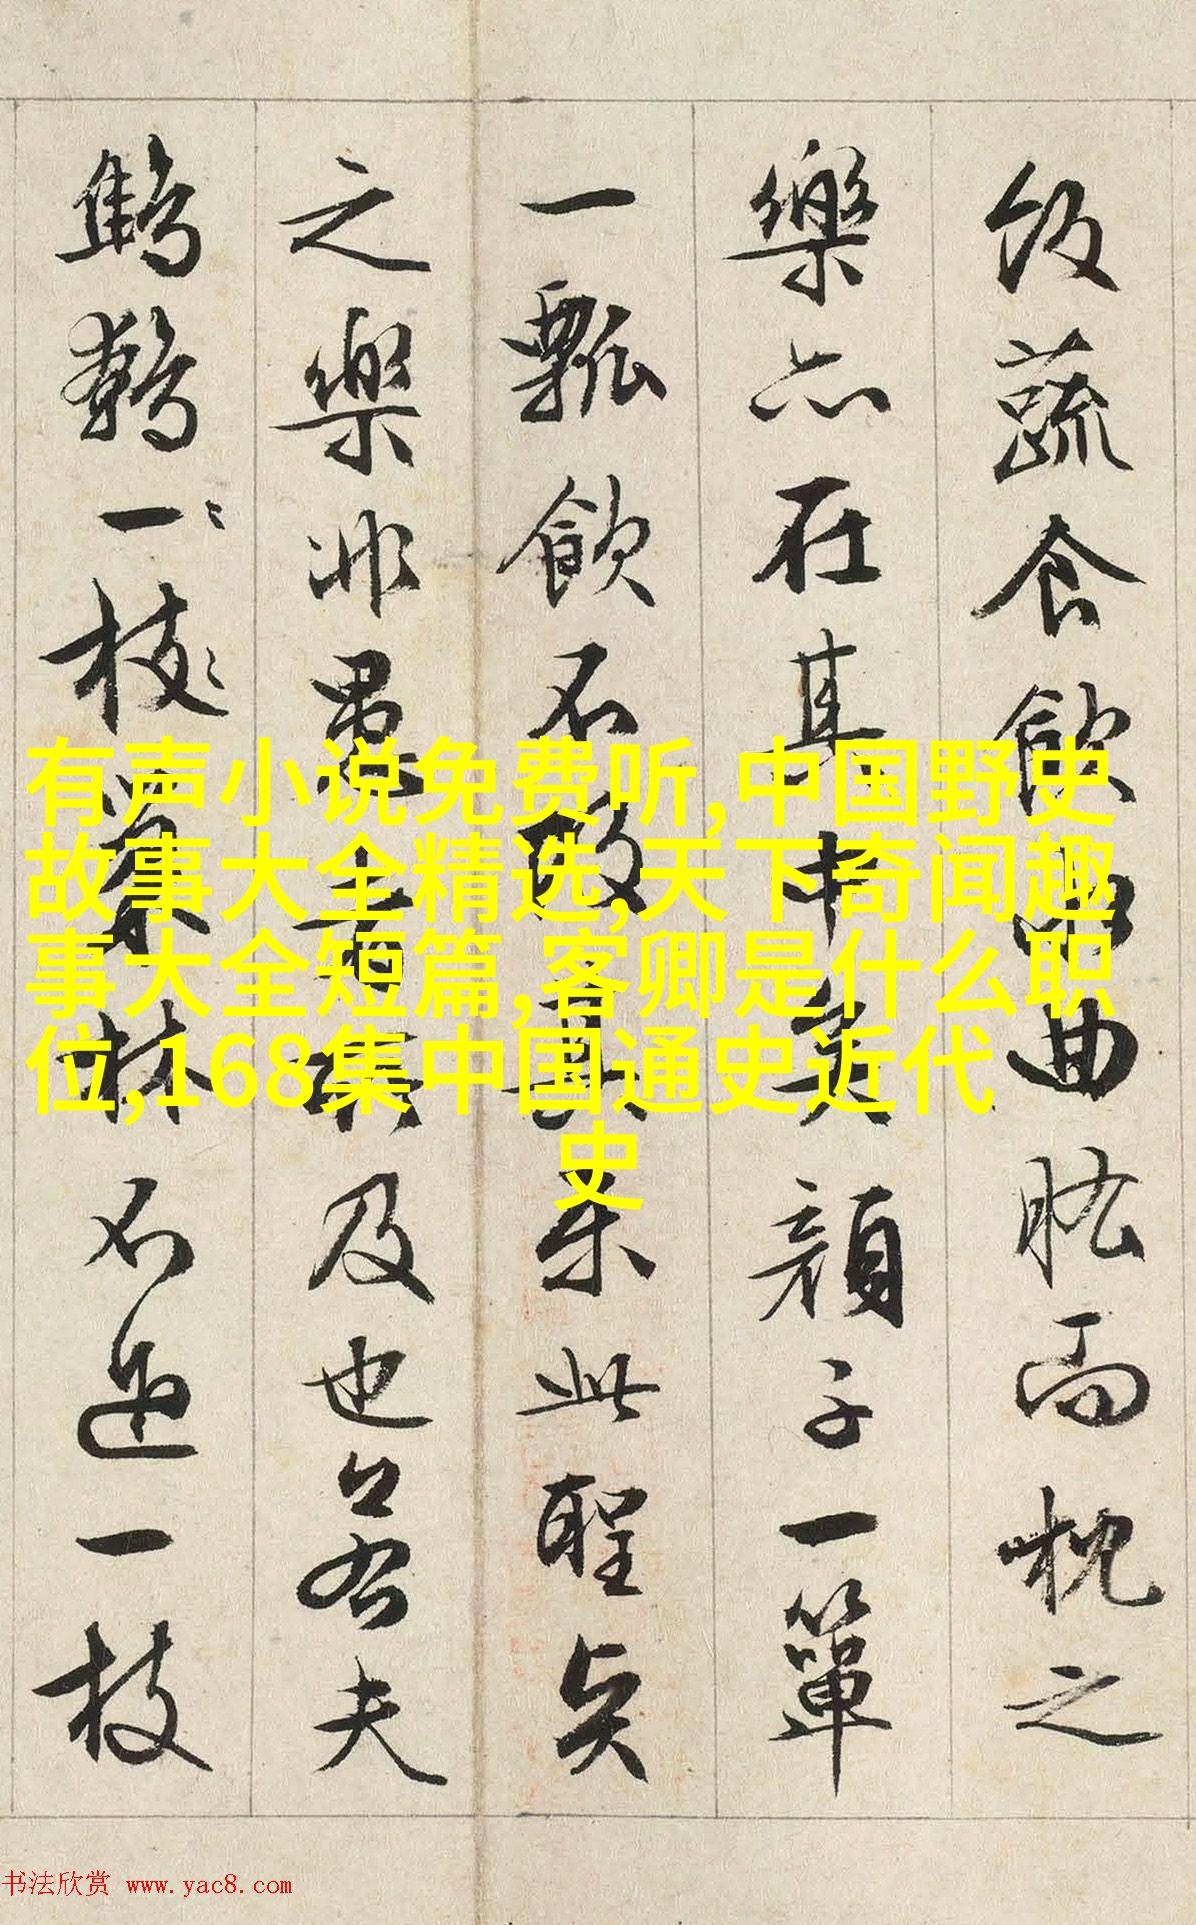 饭蔬食飲水曲肱而枕之
樂亦在其中矣顏子一簞
一瓢飲不改其樂此聖賢
之樂非愚者所及也若夫
鷦鷯一枝巢林不過一枝
有声小说免费听,中国野史
故事大全精选,天下奇闻趣
事大全短篇,客卿是什么职
位,168集中国通史近代
史
书法欣赏 www.yac8.com